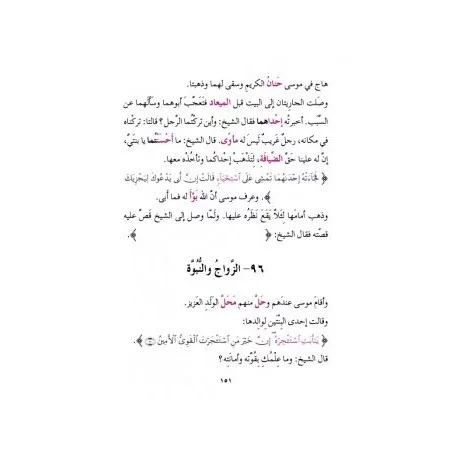 هاج في موسى حَنانُ الكريمِ وسقى لهما وذهبتا.
وصَلت الجاريتان إلى البيت قبل الميعاد فتَعَجَّبَ أبوهما وسألَهما عن
السَّبب. أخبرتْه إحْداهما فقال الشيخ: وأين تركتُما الرَّجل؟ قالتا: تركناه
في مكانه، رجلٌ غريبٌ ليس له مأوى. قال الشيخ: ما أحسَنْتُما يا بنتَيَّ،
إنَّ له علينا حَقَّ الضِّيافةِ، لِتَذْهَبَ إحداكُما وتأخُذْه معها.
﴿ فَجَاءَتْهُ إِحْدَىٰهُمَا تَمْشِى عَلَى ٱسْتِحْيَآءٍ قَالَتْ إِنَّ أَبِى يَدْعُوكَ لِيَجْزِيَكَ
﴾. وعرف موسى أنَّ الله بَرَّأ له فما أبى.
وذهب أمامَها لِكَلاّ يَقَعَ نَظَرُه عليها. ولَمّا وصل إلى الشيخ قصَّ عليه
قصّته فقال الشيخ: ﴿ ﴾.
٩٦- الزَّواجُ والنُّبوَّة
وأقامَ موسى عندَهم وحَلَّ منهم مَحَلَّ الوَلَدِ العزيز.
وقالت إحدى البِنْتَين لِوالِدها:
﴿ يَٰٓأَبَتِ ٱسْتَـْٔجِرْهُ إِنَّ خَيْرَ مَنِ ٱسْتَـْٔجَرْتَ ٱلْقَوِىُّ ٱلْأَمِينُ ﴾.
قال الشيخ: وما عِلْمُكِ بِقُوَّته وأمانَتِه؟
١٥١